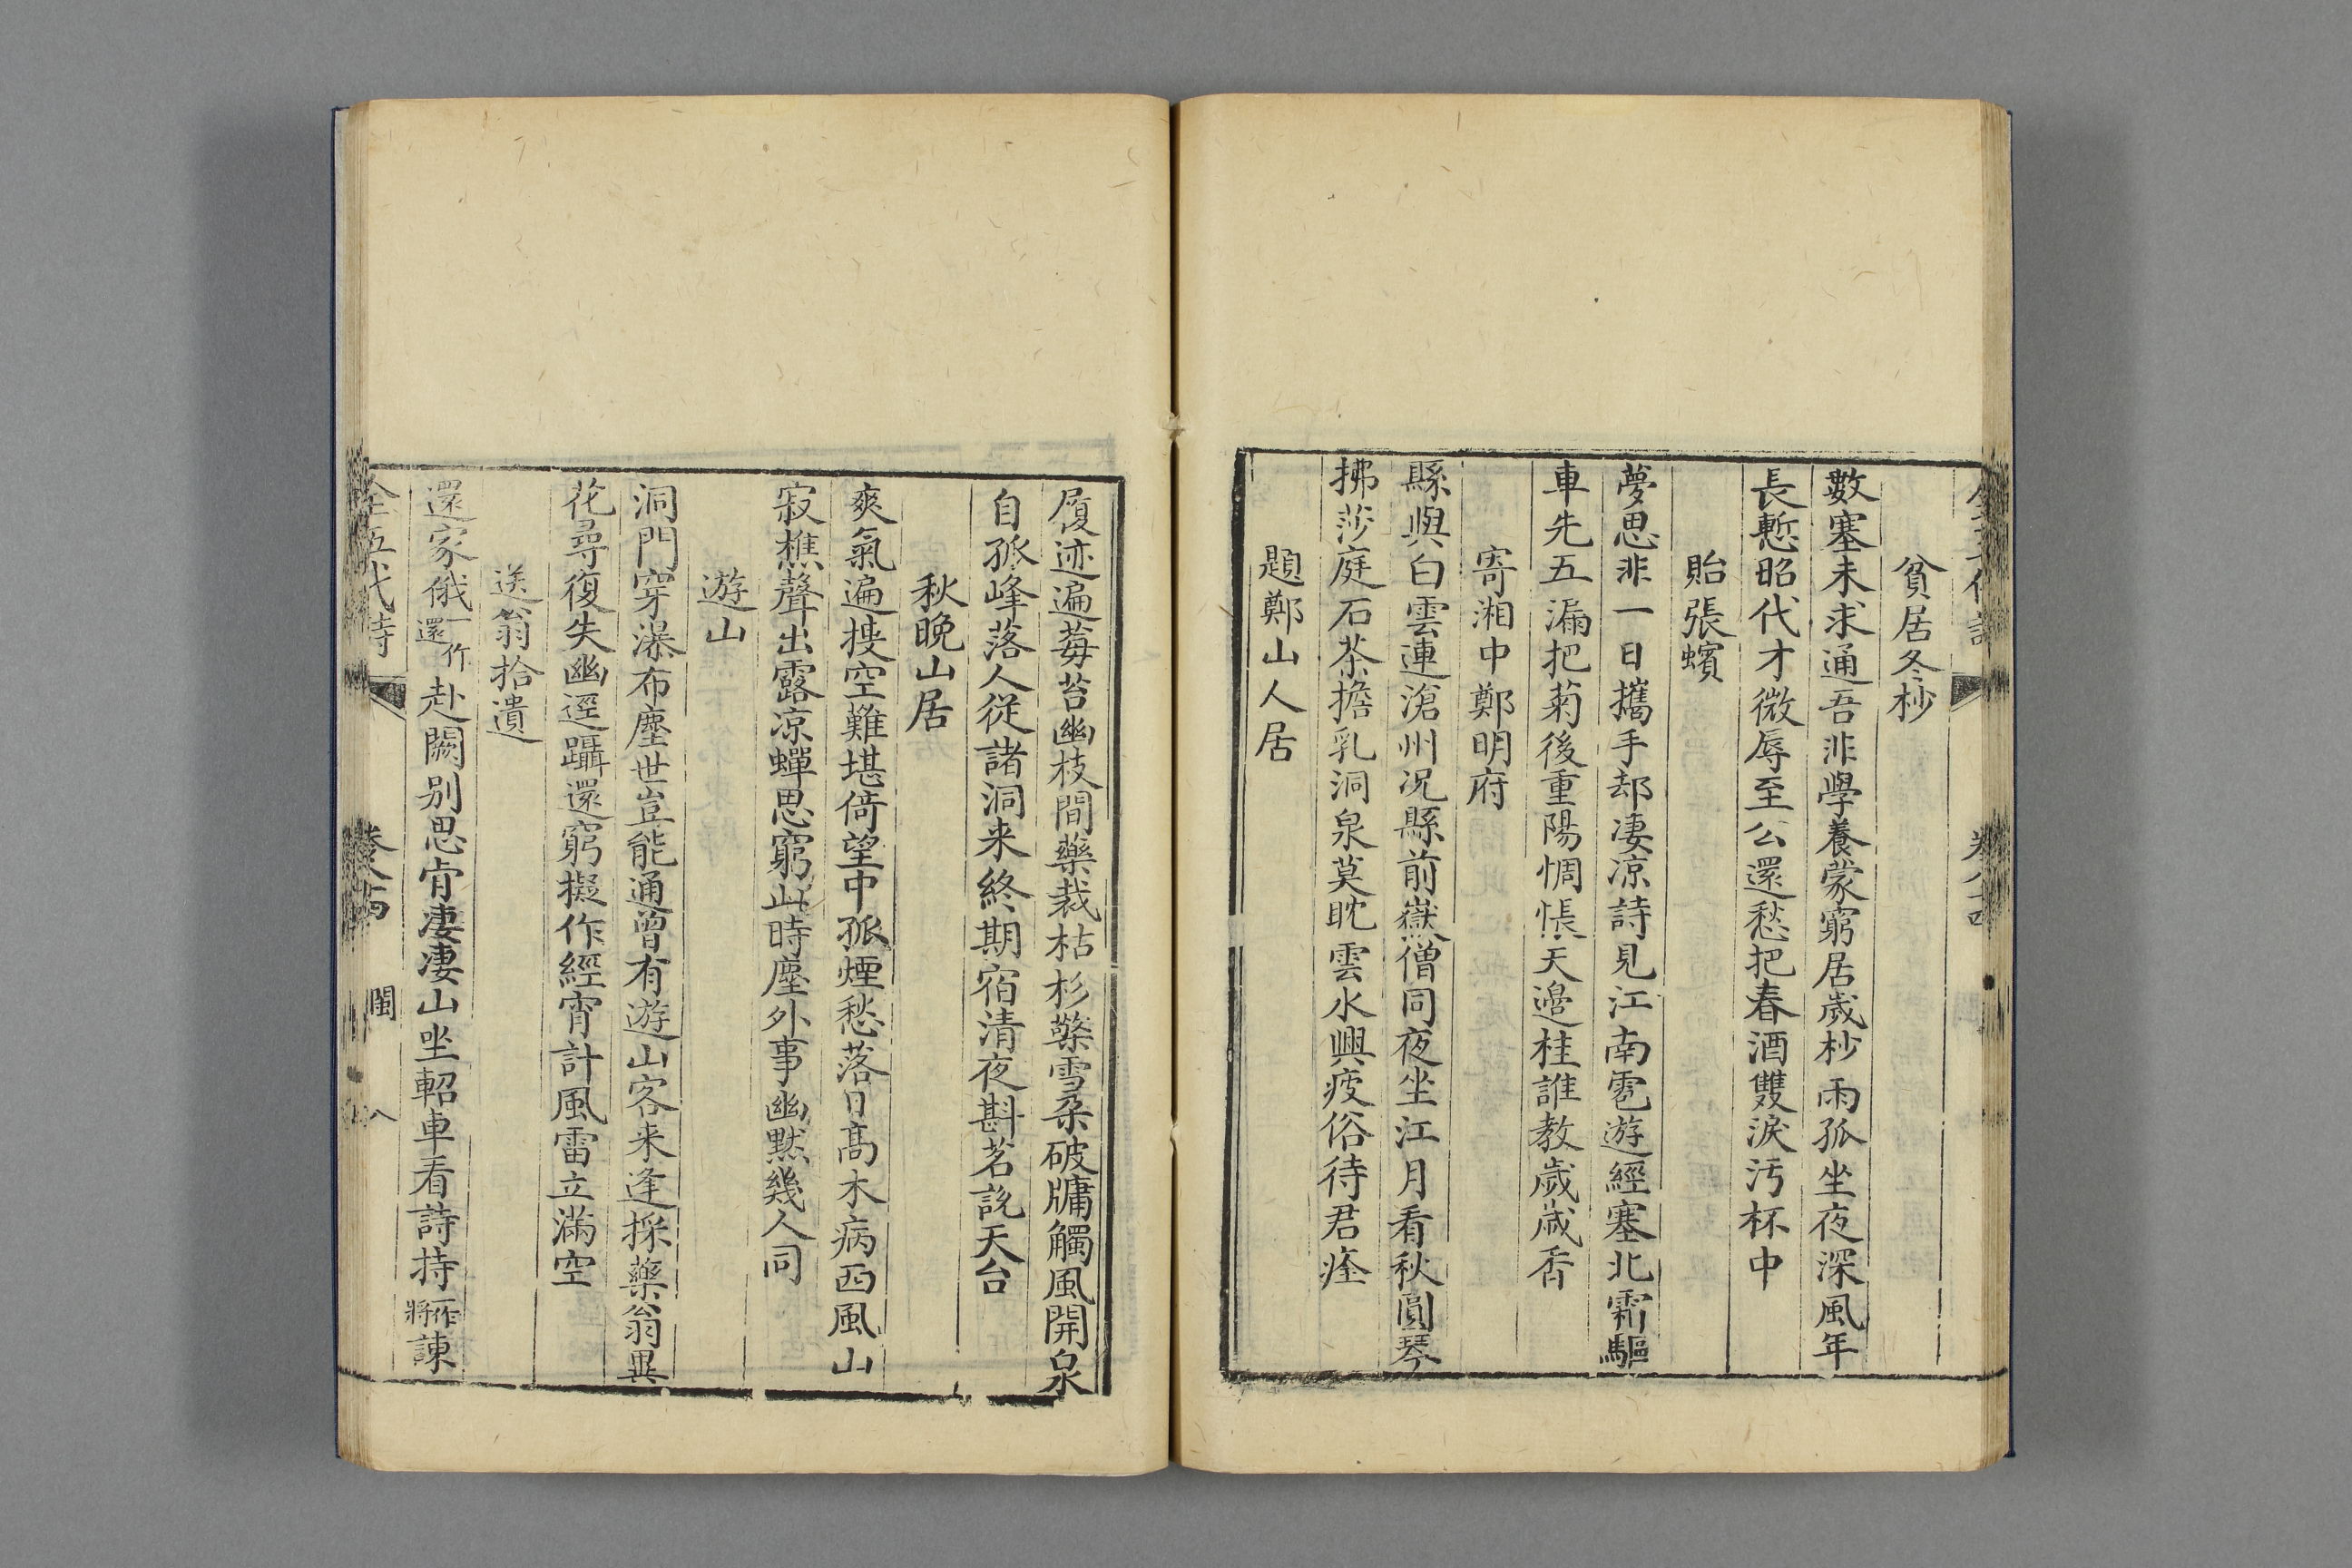 貧居冬杪
數塞未求通吾非學養蒙窮居歲杪雨孤坐夜深風年
長慙昭代才微辱至公還愁把春酒雙淚汚杯中
貽張蠙
夢思非一日攜手却淒凉詩見江南雹遊經塞北霜驅
車先五漏把菊後重陽惆悵天邊桂誰教歲歲香
寄湘中鄭明府
縣與白雲連滄州况縣前嶽僧同夜坐江月看秋圓琴
拂莎庭石茶擔乳洞泉莫耽雲水興疲俗待君痊
題鄭山人居
履迹遍莓苔幽枝間藥裁枯杉擎雪朶破牖觸風開泉
自孤峰落人從諸洞来終期宿清夜斟茗說天台
秋晚山居
爽氣遍搜空難堪倚望中孤煙愁落日高木病西風山
寂樵聲出露凉蟬思窮此時塵外事幽黙幾人同
遊山
洞門穿瀑布塵世豈能通曾有遊山客来逢採藥翁異
花尋復失幽逕躡還窮擬作經宵計風雷立滿空
送翁拾遺
還家俄一作還赴闕别思肯淒淒山坐軺車看詩持一作將諫
全五代詩 卷八十四 閩 八